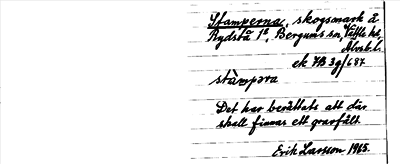 Stamperna, skogsmark å
Rydsbå 1², Bergums sn, Vättle hd,
Älvsb. l.
ek 7B 3g/687
stàmpəra
Det har berättats att där
skall finnas ett gravfält.
Erik Larsson 1965.